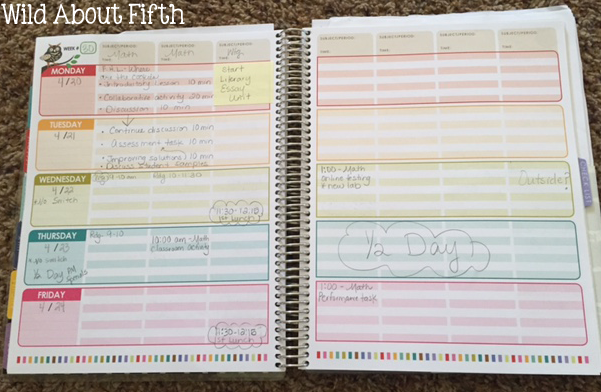 Wild About Fifth
WEEK #
SUBJECT/PERIOD: SUBJECT/PERIOD: SUBJECT/PERIOD:
Math Math
TIME TIME TIME
SUBJECT/PERIOD: SUBJECT/PERIOD: SUBJECT/PERIOD: SUBJECT/PERIOD:
TIME TIME TIME TIME
MONDAY
4/20
• Introductory lesson 10 min
• Collaborative activity 20 min
• Discussion 10 min
Start
Library
Essay
Unit
TUESDAY
4/21
• Continue discussion 10 min
• assessment task 10 min
• Improving solutions 10 min
• Discuss student samples
WEDNESDAY
4/22
Rdg 10-11:30
11:30-12:18
1st Lunch
1:00-Math
online testing
Outside?
THURSDAY
4/23
1/2 Day
Rdg 9-10
10:00 am-Math
Classroom activity
1/2 Day
FRIDAY
4/24
11:30-12:18
1st Lunch
1:00-Math
Performance task